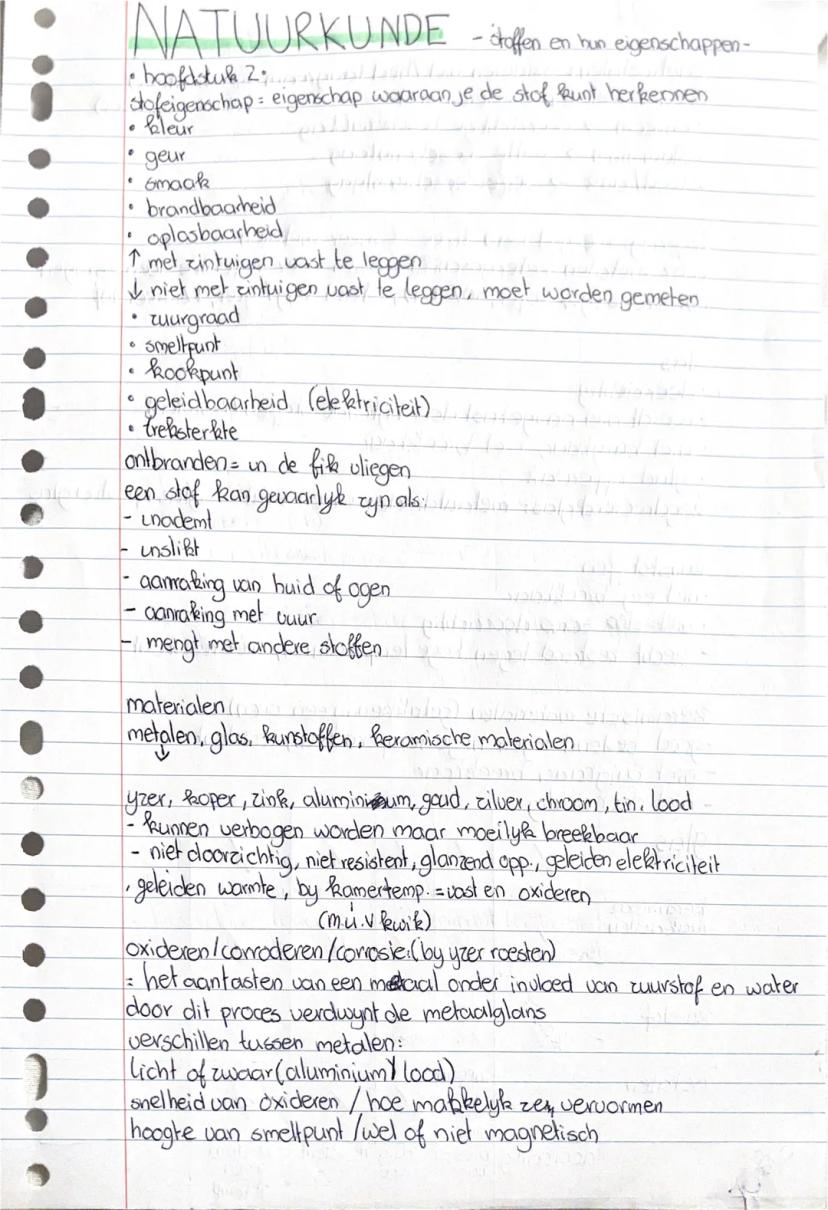 NATUURKUNDE - stoffen en hun eigenschappen-
• hoofdstuk 2:
stofeigenschap = eigenschap waaraan je de stof kunt herkennen
• kleur
• geur
• smaak
• brandbaarheid
• oplosbaarheid
↑ met zintuigen vast te leggen
↓ niet met zintuigen vast te leggen, moet worden gemeten
• zuurgraad
• smeltpunt
• kookpunt
• geleidbaarheid (elektriciteit)
• treksterkte
ontbranden = in de fik vliegen
een stof kan gevaarlijk zijn als:
- inademt
- inslikt
- aanraking van huid of ogen
- aanraking met vuur
- mengt met andere stoffen
materialen
metalen, glas, kunstoffen, keramische materialen
↓
ijzer, koper, zink, aluminium, goud, zilver, chroom, tin, lood
- kunnen verbogen worden maar moeilijk breekbaar
- niet doorzichtig, niet resistent, glanzend opp., geleiden elektriciteit
, geleiden warmte, bij kamertemp. = vast en oxideren
(m.u.v kwik)
oxideren/corroderen/corrosie:(bij ijzer roesten)
= het aantasten van een metaal onder invloed van zuurstof en water
door dit proces verdwijnt de metaalglans
verschillen tussen metalen:
licht of zwaar (aluminium/lood)
snelheid van oxideren / hoe makkelijk ze vervormen
hoogte van smeltpunt /wel of niet magnetisch